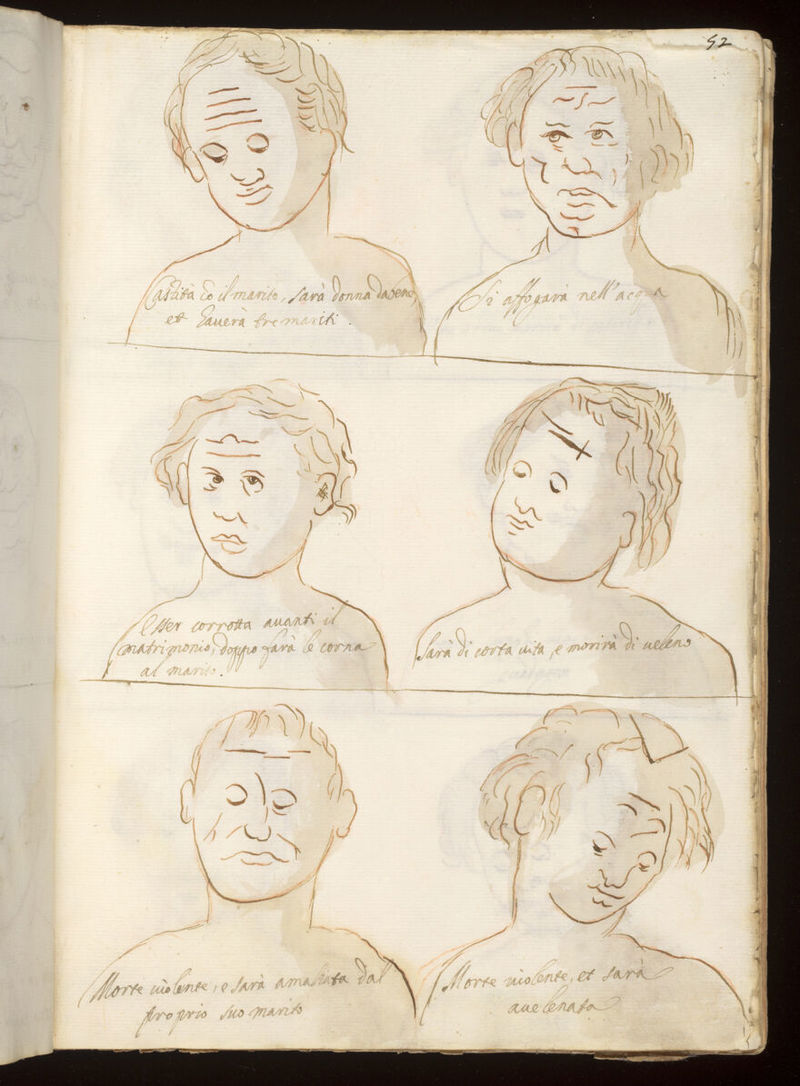 52
Castità cõ il marito, sarà donna da bene
et haverà tre mariti.
Si affogarà nell'acqua
Esser corrotta avanti il
matrimonio, doppo farà le corna
al marito.
Sarà di corta vita, e morirà di veleno
Morte violente, e sarà amazata dal
proprio suo marito
Morte violente, et sarà
avelenata